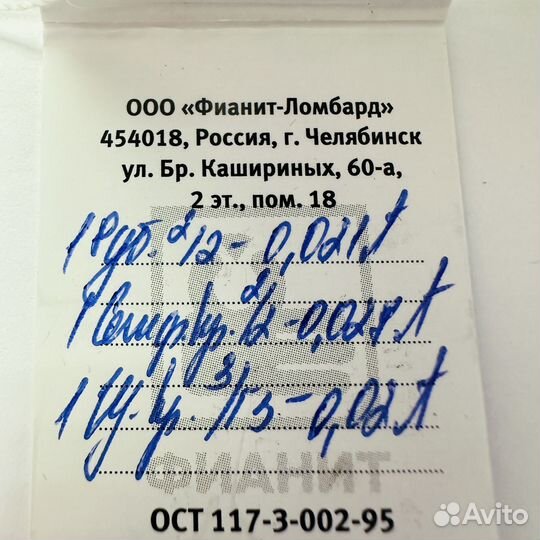 ООО «Фианит-Ломбард»
454018, Россия, г. Челябинск
ул. Бр. Кашириных, 60-а,
2 эт., пом. 18
1 Руб. 2/2 - 0,021
1 Сапф. кр. 2/2 - 0,028
1 Из. кр. 3/Г3 - 0,02
ФИАНИТ
ОСТ 117-3-002-95
Avito